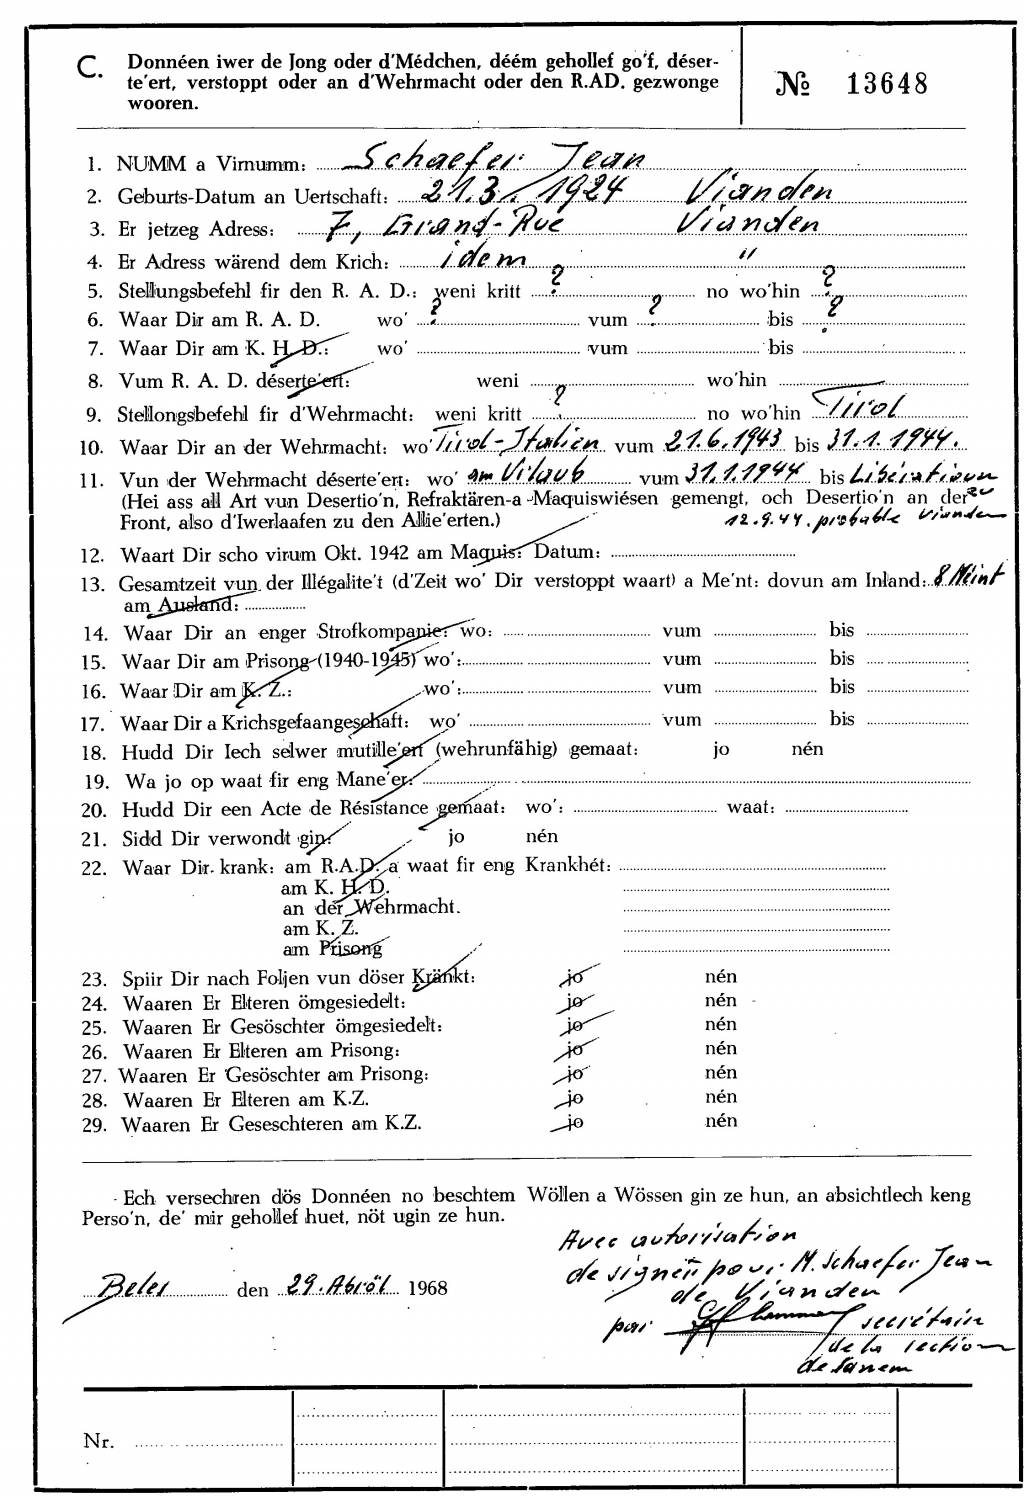 C. Donnéen iwer de Jong oder d'Médchen, déém gehollef go'f, déser-
te'ert, verstoppt oder an d'Wehrmacht oder den R.AD. gezwonge
wooren.
№ 13648
1. NUMM a Virnumm: Schaefer Jean
2. Geburts-Datum an Uertschaft: 21.3.1924 Vianden
3. Er jetzeg Adress: 7, Grand-Rue Vianden
4. Er Adress wärend dem Krich: idem "
5. Stellungsbefehl fir den R. A. D.: weni kritt ? no wo'hin ?
6. Waar Dir am R. A. D. wo' ? vum ? bis ?
7. Waar Dir am K. H. D.: wo' vum bis
8. Vum R. A. D. déserte'ert: weni wo'hin
9. Stellongsbefehl fir d'Wehrmacht: weni kritt ? no wo'hin Tirol
10. Waar Dir an der Wehrmacht: wo' Tirol-Italien vum 21.6.1943 bis 31.1.1944.
11. Vun der Wehrmacht déserte'ert: wo' am Urlaub vum 31.1.1944 bis Libération
(Hei ass all Art vun Desertio'n, Refraktären-a -Maquiswiésen gemengt, och Desertio'n an der zu
Front, also d'Iwerlaafen zu den Allie'erten.) 12.9.44. probable Vianden
12. Waart Dir scho virum Okt. 1942 am Maquis: Datum:
13. Gesamtzeit vun der Illégalite't (d'Zeit wo' Dir verstoppt waart) a Me'nt: dovun am Inland: 8 Méint
am Ausland:
14. Waar Dir an enger Strofkompanie: wo: vum bis
15. Waar Dir am Prisong (1940-1945) wo': vum bis
16. Waar Dir am K. Z.: wo': vum bis
17. Waar Dir a Krichsgefaangeschaft: wo' vum bis
18. Hudd Dir Iech selwer mutille'ert (wehrunfähig) gemaat: jo nén
19. Wa jo op waat fir eng Mane'er:
20. Hudd Dir een Acte de Résistance gemaat: wo': waat:
21. Sidd Dir verwondt gin: jo nén
22. Waar Dir krank: am R.A.D. a waat fir eng Krankhét:
am K. H. D.
an der Wehrmacht.
am K. Z.
am Prisong
23. Spiir Dir nach Foljen vun döser Kränkt: jo nén
24. Waaren Er Elteren ömgesiedelt: jo nén
25. Waaren Er Gesöschter ömgesiedelt: jo nén
26. Waaren Er Elteren am Prisong: jo nén
27. Waaren Er Gesöschter am Prisong: jo nén
28. Waaren Er Elteren am K.Z. jo nén
29. Waaren Er Geseschteren am K.Z. jo nén
Ech versechren dös Donnéen no beschtem Wöllen a Wössen gin ze hun, an absichtlech keng
Perso'n, de' mir gehollef huet, nöt ugin ze hun.
Avec autorisation
de signer pour M. Schaefer Jean
de Vianden
Beles den 29. Abröl 1968
par secrétaire
de la section
de Sanem
Nr.